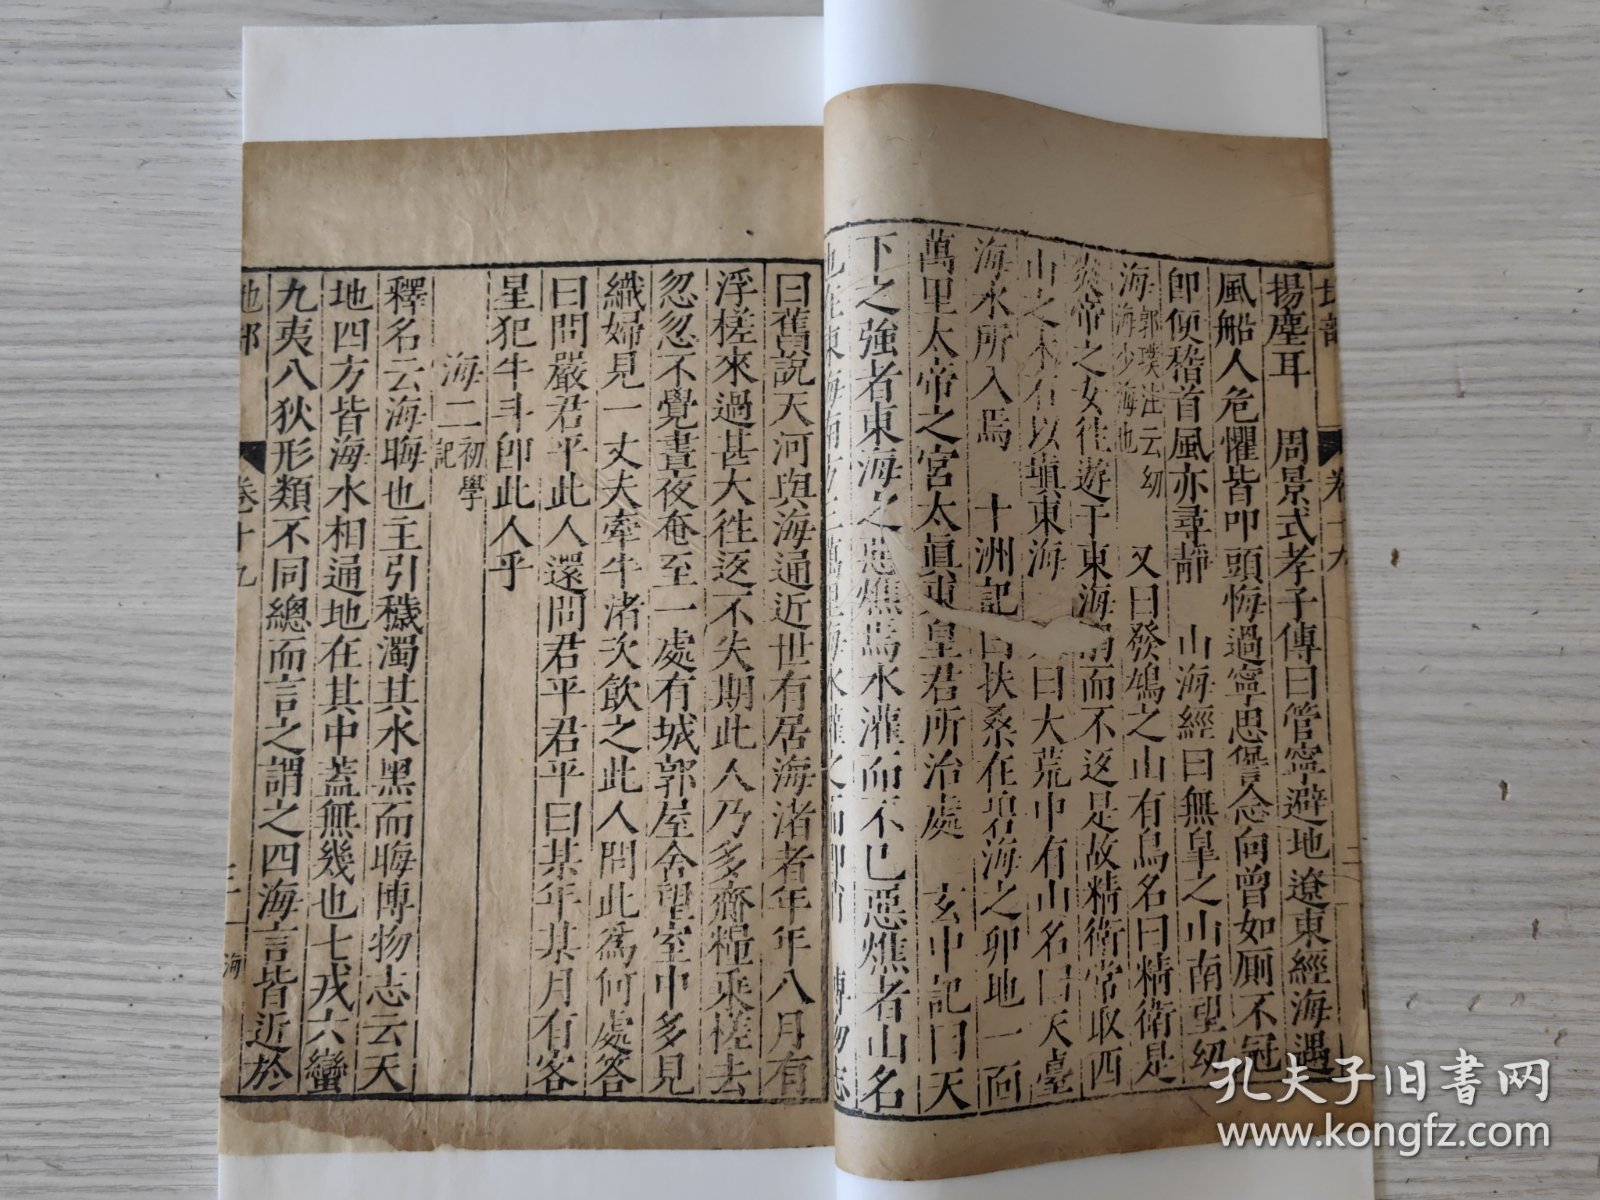 揚塵耳 周景式孝子傳曰管寧避地遼東經海遇
風船人危懼皆叩頭悔過寧思愆念向曾如厠不冠
卽便稽首風亦尋靜 山海經曰無臯之山南望幼
海郭璞注云幼海少海也 又曰發鳩之山有鳥名曰精衛是
炎帝之女往遊于東海溺而不返是故精衛常取西
山之木石以塡東海 曰大荒中有山名曰天臺
海水所入焉 十洲記曰扶桑在碧海之卯地一面
萬里太帝之宮太眞東皇君所治處 玄中記曰天
下之強者東海之惡燋焉水灌而不已惡燋者山名
也在東海南方三萬里海水灌之而卽消 博物志
曰舊說天河與海通近世有居海渚者年年八月有
浮槎來過甚大往返不失期此人乃多齎糧乘槎去
忽忽不覺晝夜奄至一處有城郭屋舍望室中多見
織婦見一丈夫牽牛渚次飲之此人問此爲何處答
曰問嚴君平此人還問君平君平曰某年某月有客
星犯牛斗卽此人乎
海二初學記
釋名云海晦也主引穢濁其水黑而晦博物志云天
地四方皆海水相通地在其中蓋無幾也七戎六蠻
九夷八狄形類不同總而言之謂之四海言皆近於
地部 卷十九 三 海
孔夫子旧書网
www.kongfz.com